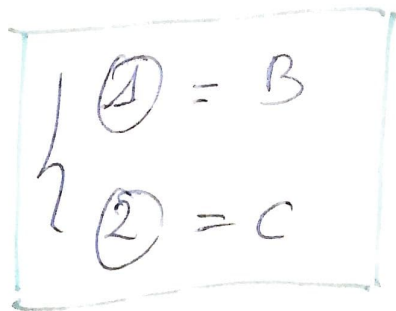 ① = B
② = C